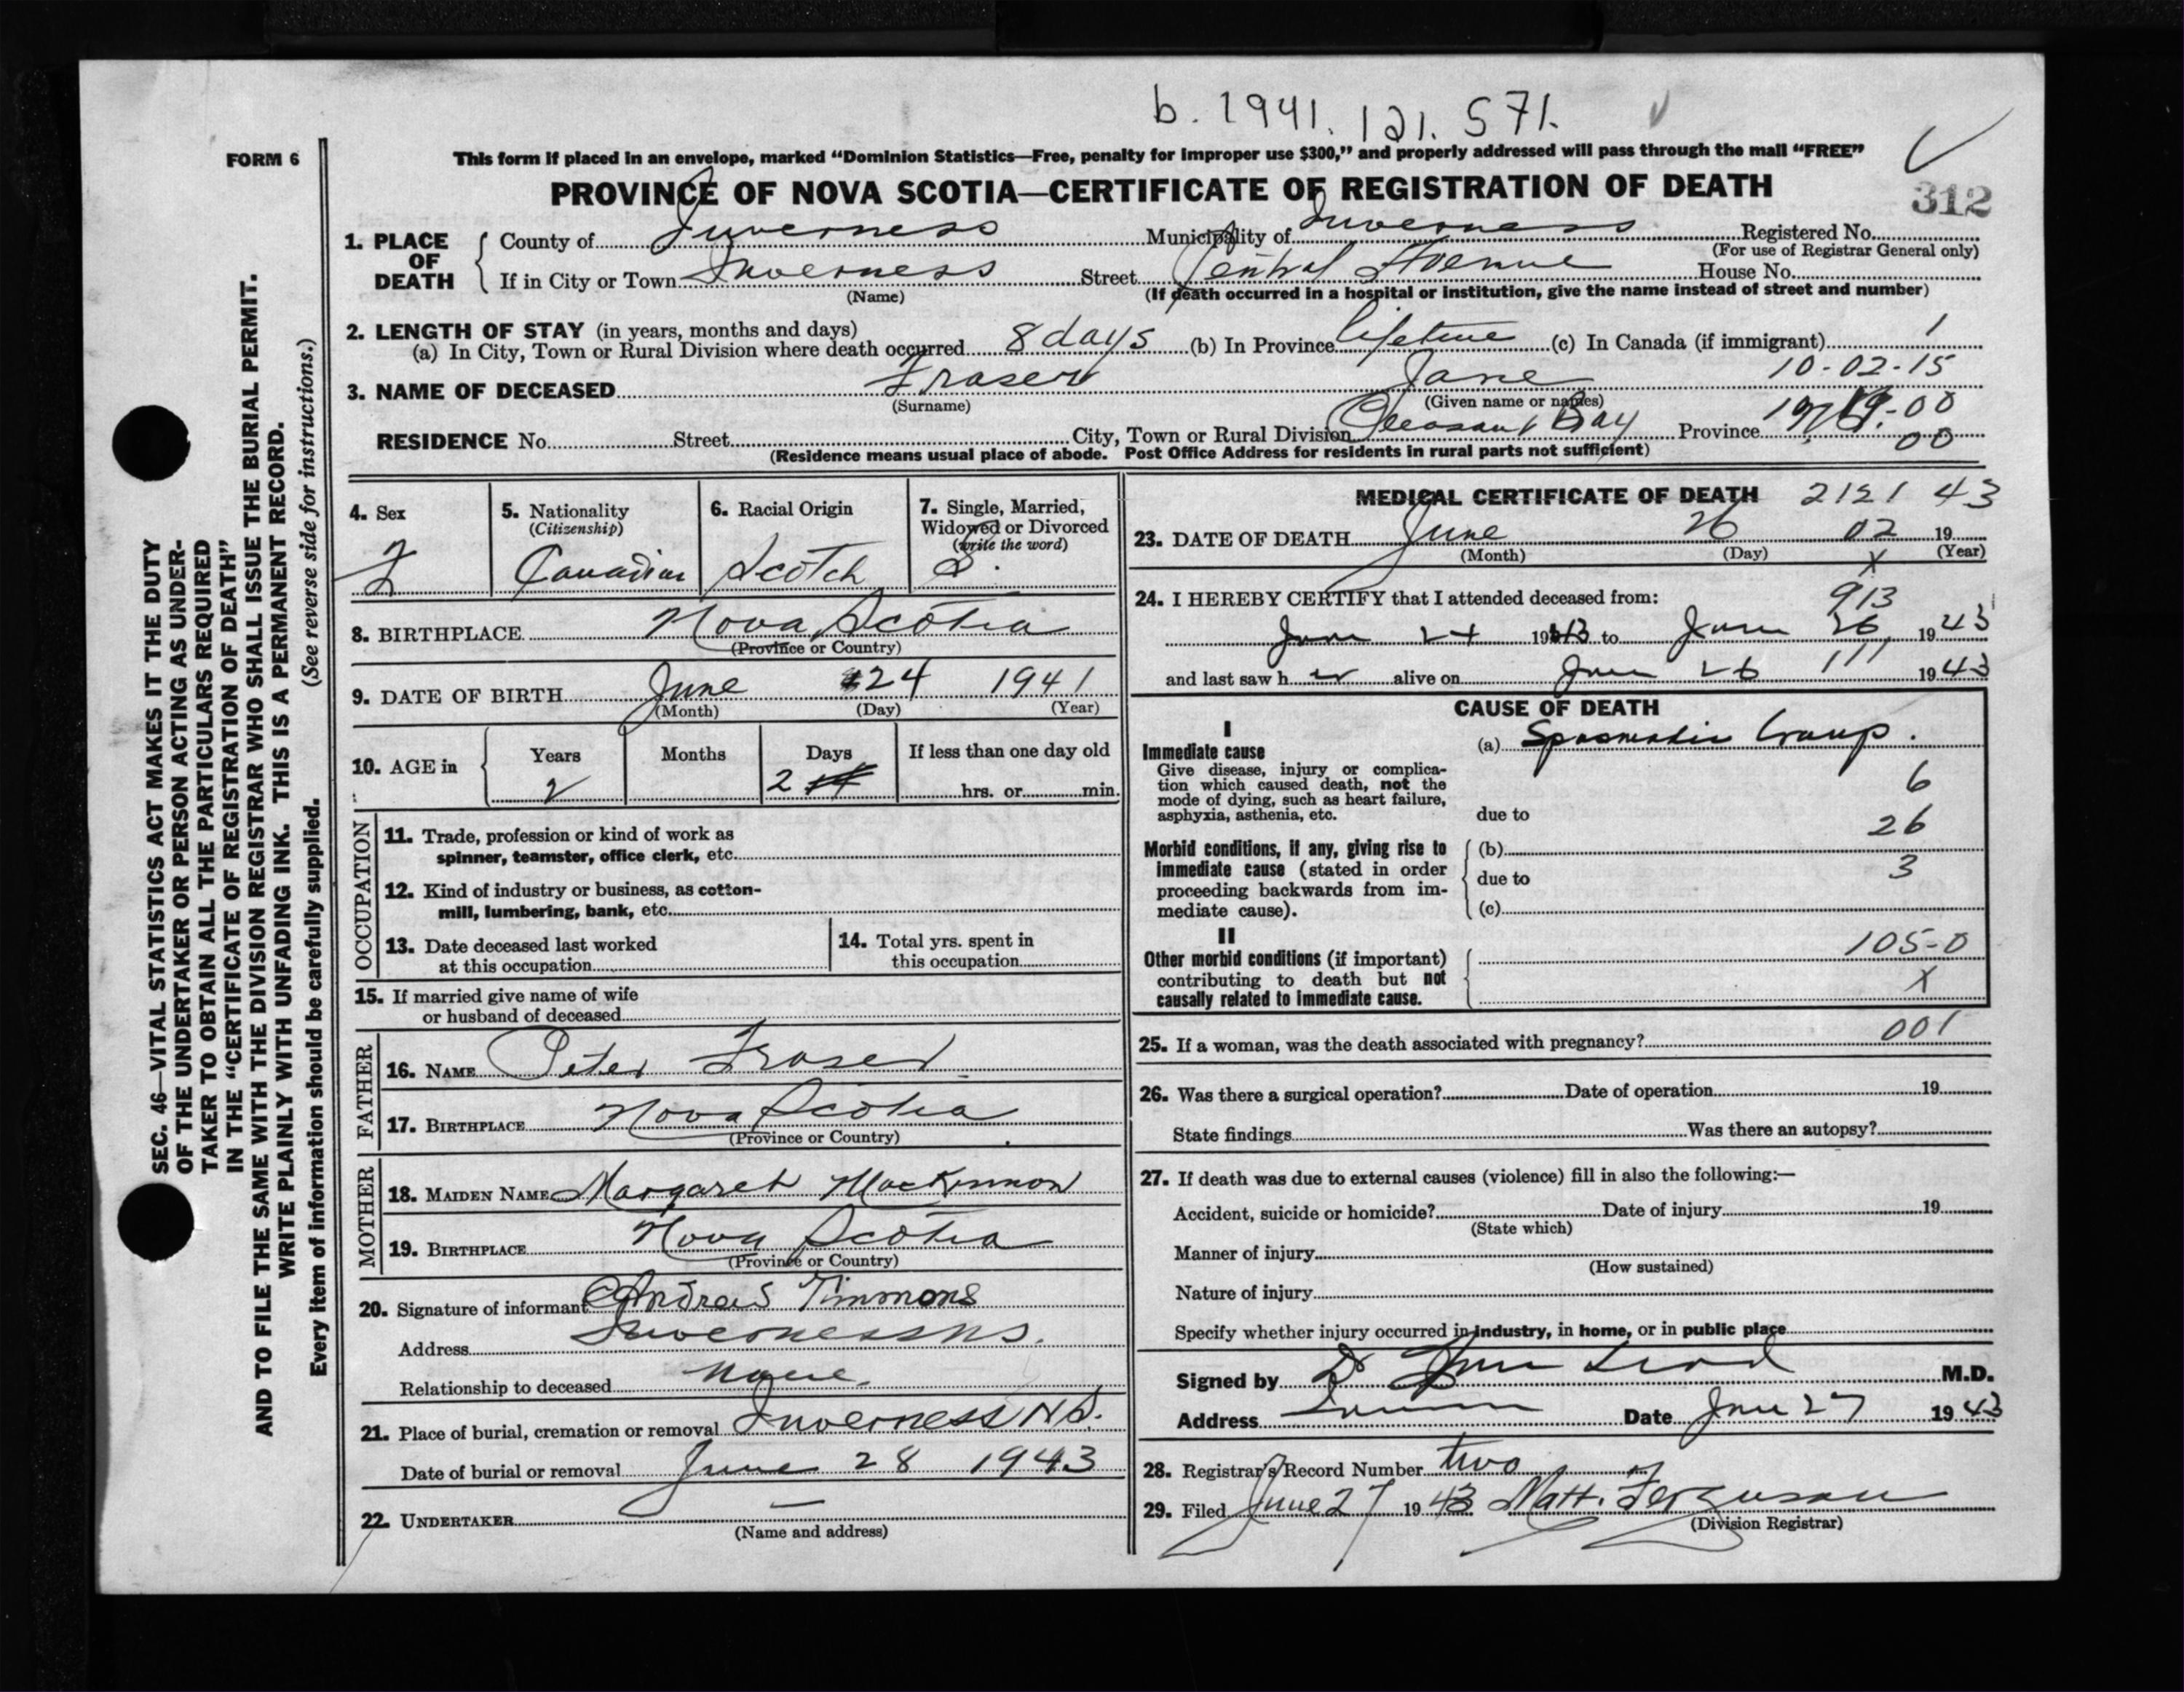 b. 1941. 121. 571.
FORM 6
This form if placed in an envelope, marked “Dominion Statistics—Free, penalty for improper use $300,” and properly addressed will pass through the mail “FREE”
PROVINCE OF NOVA SCOTIA—CERTIFICATE OF REGISTRATION OF DEATH
312
1. PLACE OF DEATH
County of Inverness Municipality of Inverness Registered No.
(For use of Registrar General only)
If in City or Town Inverness Street Central Avenue House No.
(Name) (If death occurred in a hospital or institution, give the name instead of street and number)
2. LENGTH OF STAY (in years, months and days)
(a) In City, Town or Rural Division where death occurred 8 days (b) In Province lifetime (c) In Canada (if immigrant) 1
10-02-15
3. NAME OF DECEASED Fraser Jane
(Surname) (Given name or names)
RESIDENCE No. Street City, Town or Rural Division Pleasant Bay Province
00
(Residence means usual place of abode. Post Office Address for residents in rural parts not sufficient)
4. Sex
F
5. Nationality
(Citizenship)
Canadian
6. Racial Origin
Scotch
7. Single, Married,
Widowed or Divorced
(write the word)
S.
8. BIRTHPLACE Nova Scotia
(Province or Country)
9. DATE OF BIRTH June 24 1941
(Month) (Day) (Year)
10. AGE in
Years Months Days If less than one day old
2 2 hrs. or min.
OCCUPATION
11. Trade, profession or kind of work as
spinner, teamster, office clerk, etc.
12. Kind of industry or business, as cotton-
mill, lumbering, bank, etc.
13. Date deceased last worked
at this occupation
14. Total yrs. spent in
this occupation
15. If married give name of wife
or husband of deceased
FATHER
16. NAME Peter Fraser
17. BIRTHPLACE Nova Scotia
(Province or Country)
MOTHER
18. MAIDEN NAME Margaret MacKinnon
19. BIRTHPLACE Nova Scotia
(Province or Country)
20. Signature of informant Andrew Timmons
Address Inverness N.S.
Relationship to deceased None.
21. Place of burial, cremation or removal Inverness N.S.
Date of burial or removal June 28 1943
22. UNDERTAKER —
(Name and address)
MEDICAL CERTIFICATE OF DEATH 2121 43
23. DATE OF DEATH June 26 02 19
(Month) (Day) (Year)
X
24. I HEREBY CERTIFY that I attended deceased from:
913
June 24 1943 to June 26, 1943
and last saw her alive on June 26 111 1943
CAUSE OF DEATH
I
Immediate cause
Give disease, injury or complica-
tion which caused death, not the
mode of dying, such as heart failure,
asphyxia, asthenia, etc.
(a) Spasmodic Croup.
6
due to
26
Morbid conditions, if any, giving rise to
immediate cause (stated in order
proceeding backwards from im-
mediate cause).
(b)
due to 3
(c)
II
Other morbid conditions (if important)
contributing to death but not
causally related to immediate cause.
105-0
X
001
25. If a woman, was the death associated with pregnancy?
26. Was there a surgical operation? Date of operation 19
State findings Was there an autopsy?
27. If death was due to external causes (violence) fill in also the following:—
Accident, suicide or homicide? Date of injury 19
(State which)
Manner of injury
(How sustained)
Nature of injury
Specify whether injury occurred in industry, in home, or in public place
Signed by M.D.
Address Date June 27 1943
28. Registrar's Record Number two
29. Filed June 27 1943 Matt. Ferguson
(Division Registrar)
SEC. 46—VITAL STATISTICS ACT MAKES IT THE DUTY
OF THE UNDERTAKER OR PERSON ACTING AS UNDER-
TAKER TO OBTAIN ALL THE PARTICULARS REQUIRED
IN THE “CERTIFICATE OF REGISTRATION OF DEATH”
AND TO FILE THE SAME WITH THE DIVISION REGISTRAR WHO SHALL ISSUE THE BURIAL PERMIT.
WRITE PLAINLY WITH UNFADING INK. THIS IS A PERMANENT RECORD.
Every item of information should be carefully supplied. (See reverse side for instructions.)